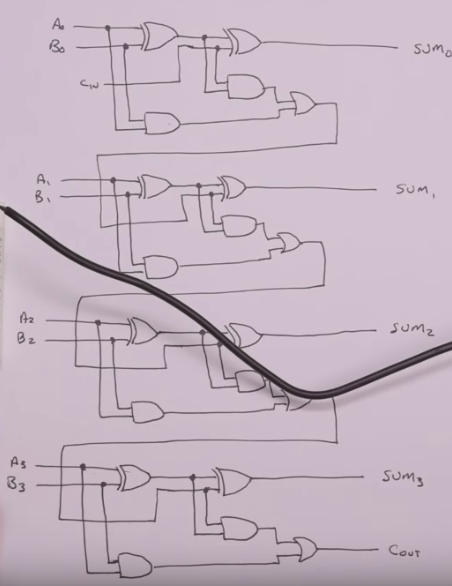 A₀
B₀ SUM₀
CIN
A₁
B₁ SUM₁
A₂
B₂ SUM₂
A₃
B₃ SUM₃
COUT